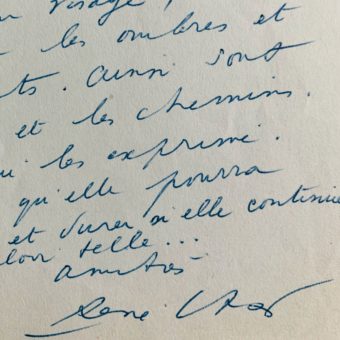 visage,
les ombres et
ts. ainsi sont
et les chemins.
ui les exprime.
qu'elle pourra
et durer si elle continue
telle...
amitiés
René Char